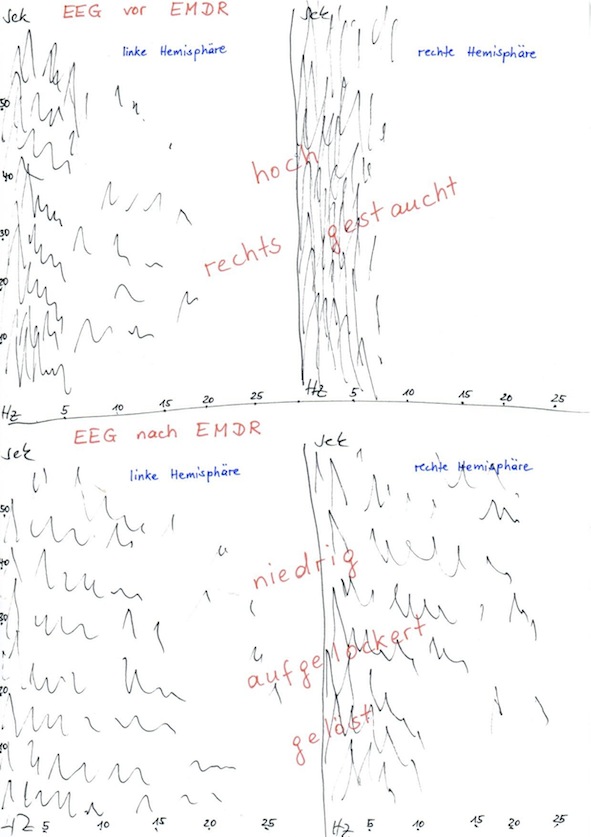 Sek EEG vor EMDR Sek
linke Hemisphäre rechte Hemisphäre
50
hoch
40
gestaucht
30
rechts
20
10
Hz 5 10 15 20 25 Hz 5 10 15 20 25
EEG nach EMDR
Sek Sek
linke Hemisphäre rechte Hemisphäre
50
40
niedrig
30
aufgelockert
20
gelöst
10
Hz 5 10 15 20 25 Hz 5 10 15 20 25